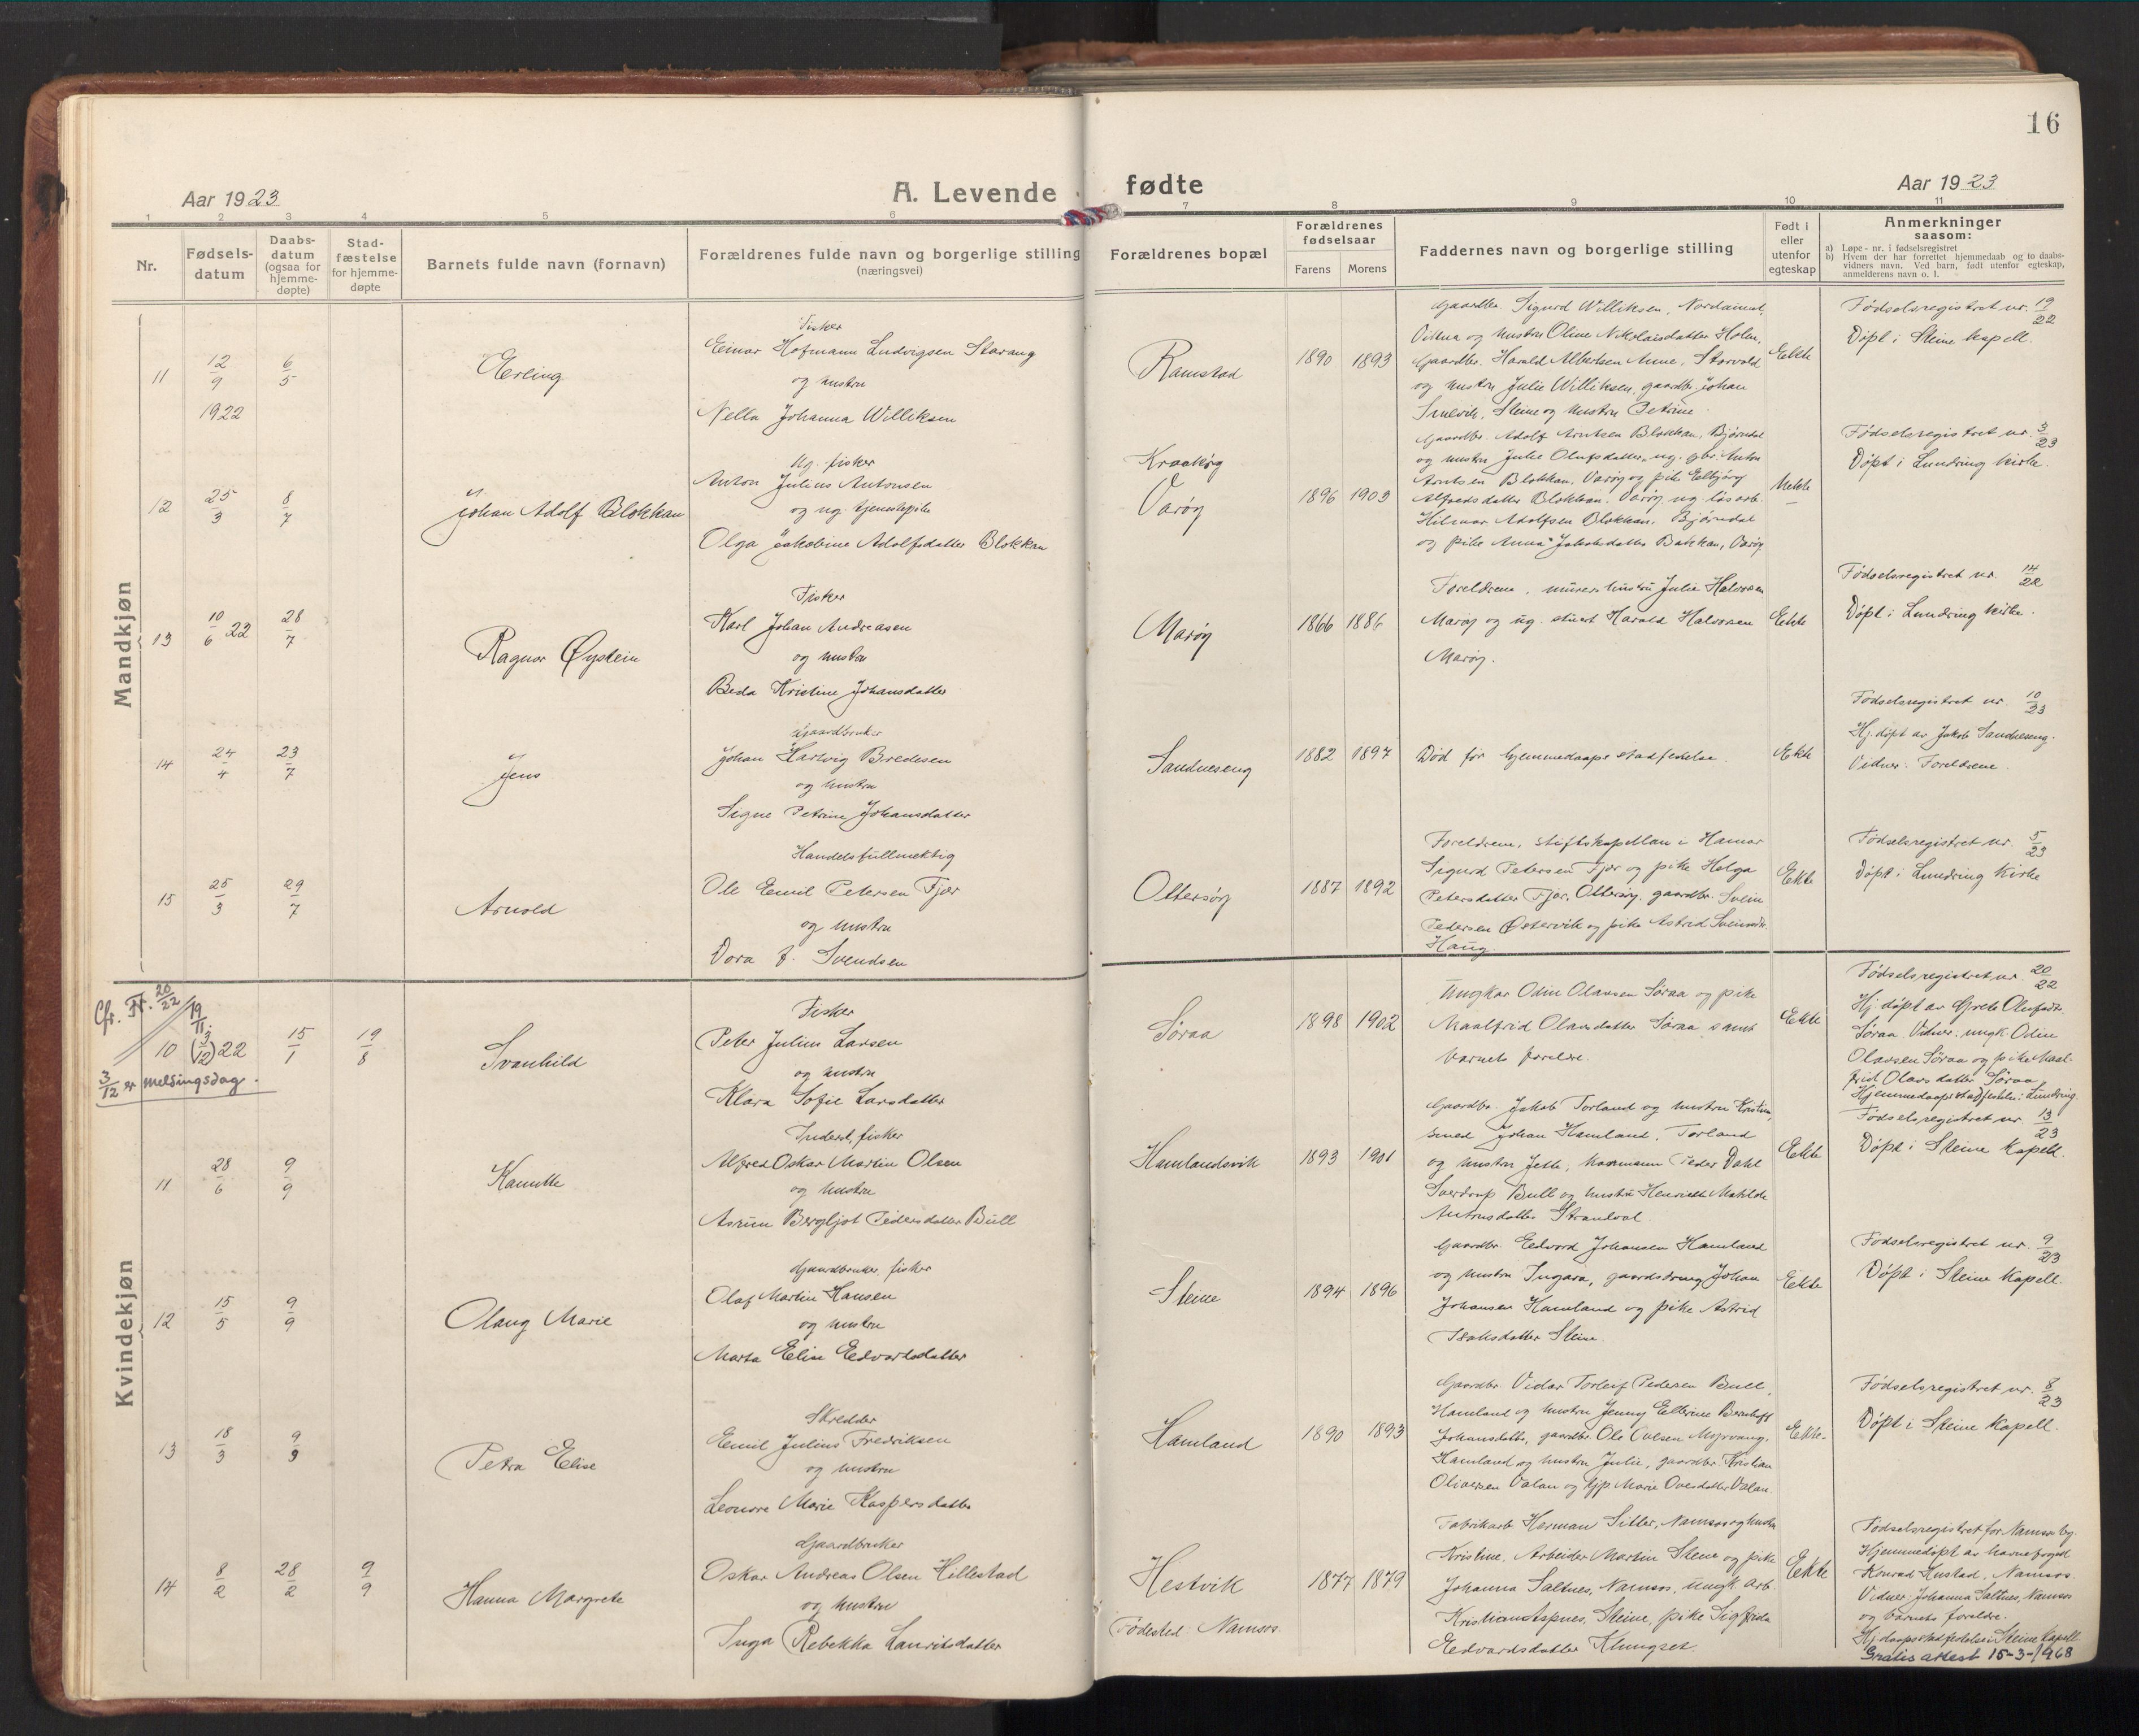 16
Aar 1923
A. Levende fødte
Aar 1923
1 2 3 4 5 6 7 8 9 10 11
Nr.
Fødsels-
datum
Daabs-
datum
(ogsaa for
hjemme-
døpte)
Stad-
fæstelse
for hjemme-
døpte
Barnets fulde navn (fornavn)
Forældrenes fulde navn og borgerlige stilling
(næringsvei)
Forældrenes bopæl
Forældrenes
fødselsaar
Farens Morens
Faddernes navn og borgerlige stilling
Født i
eller
utenfor
egteskap
Anmerkninger
saasom:
a) Løpe-nr. i fødselsregistret
b) Hvem der har forrettet hjemmedaab og to daabs-
vidners navn. Ved barn, født utenfor egteskap,
anmelderens navn o. l.
Mandkjøn
11
12/9
1922
6/5
Erling
Fisker
Einar Hofmann Ludvigsen Starang
og hustru
Nella Johanna Williksen
Ramstad
1890 1893
Gaardbr. Sigurd Williksen,
og hustru Oline Nikolaisdatter Holm,
Gaardbr. Harald Albertsen Anne, Storvold
og hustru Julie Williksen, gaardbr. Johan
Steine og hustru Petrine.
Ekte
Fødselsregistret nr. 19/22
Døpt i Steine kapell.
12
25/3
8/7
Johan Adolf Blokkan
Ug. fisker
Anton Julius Antonsen
og ug. tjenestepike
Olga Jakobine Adolfsdatter Blokkan
Kraakøy
Varøy
1896 1903
Gaardbr. Adolf Arntsen Blokkan, Bjørndal
og hustru Julie Olufsdatter, ug. gbr. Anton
Arntsen Blokkan, Varøy og pike Elbjørg
Alfredsdatter Blokkan, Varøy, ug. løsarb.
Hilmar Adolfsen Blokkan, Bjørndal
og pike Anna Jakobsdatter Bakkan, Varøy
Uekte
Fødselsregistret nr. 3/23
Døpt i Lundring kirke.
13
10/6 22
28/7
Ragnar Øystein
Fisker
Karl Johan Andreasen
og hustru
Beda Kristine Johansdatter
Marøy
1866 1886
Foreldrene, murers hustru Julie Halvorsen
Marøy og ug. stuert Harald Halvorsen
Marøy.
Ekte
Fødselsregistret nr. 14/22
Døpt i Lundring kirke.
14
24/4
23/7
Jens
Gaardbruker
Johan Hartvig Bredesen
og hustru
Signe Petrine Johansdatter
Sandneseng
1882 1897
Død før hjemmedaaps stadfestelse.
Ekte
Fødselsregistret nr. 10/23
Hj. døpt av Jakob Sandneseng.
Vidner: Foreldrene.
15
25/3
29/7
Arnold
Handelsfullmektig
Ole Emil Petersen Fjær
og hustru
Dora f. Svendsen
Ottersøy
1887 1892
Foreldrene, stiftskapellan i Hamar
Sigurd Petersen Fjær og pike Helga
Petersdatter Fjær, Ottersøy, gaardbr. Svein
Pedersen Østervik og pike Astrid Sveinsdtr.
Haug.
Ekte
Fødselsregistret nr. 5/23
Døpt i Lundring Kirke
Kvindekjøn
Cfr. Fr. 20/22
19/11.
10 (3/12) 22
3/12 er meldingsdag.
15/1
19/8
Svanhild
Fisker
Peter Julius Larsen
og hustru
Klara Sofie Larsdatter
Søraa
1898 1902
Ungkar Odin Olausen Søraa og pike
Maalfrid Olausdatter Søraa samt
barnets foreldre.
Ekte
Fødselsregistret nr. 20/22
Hj. døpt av Grete Olufsdtr.
Søraa. Vidner: ungk. Odin
Olausen Søraa og pike Maal-
frid Olausdatter Søraa.
Hjemmedaaps stadfestelse i Lundring.
11
28/6
9/9
Kanutte
Inderst, fisker
Alfred Oskar Martin Olsen
og hustru
Asrun Bergljot Pedersdatter Bull
Hamlandsvik
1893 1901
Gaardbr. Jakob Torland og hustru Kristine,
smed Johan Hamland, Torland
og hustru Jette, Peder Dahl
Sverdrup Bull og hustru Henriette Matilde
Antonsdatter Strandval.
Ekte
Fødselsregistret nr. 13/23
Døpt i Steine Kapell.
12
15/5
9/9
Olaug Marie
Gaardbruker, fisker
Olaf Martin Hansen
og hustru
Marta Elise Edvardsdatter
Steine
1894 1896
Gaardbr. Edvard Johansen Hamland
og hustru Ingara, gaardsdreng Johan
Johansen Hamland og pike Astrid
Isaksdatter Steine.
Ekte
Fødselsregistret nr. 9/23
Døpt i Steine Kapell
13
18/3
9/9
Petra Elise
Skredder
Emil Julius Fredriksen
og hustru
Leonore Marie Kaspersdatter
Hamland
1890 1893
Gaardbr. Vidar Torleif Pedersen Bull,
Hamland og hustru Jenny Ellerine Bernhoft
Johansdatter, gaardbr. Ole Olsen
Hamland og hustru Julie, gaardbr. Kristian
Oliversen Valan og hjp. Marie Ovesdatter Valan.
Ekte.
Fødselsregistret nr. 8/23
Døpt i Steine Kapell.
14
8/2
28/2
9/9
Hanna Margrete
Gaardbruker
Oskar Andreas Olsen Hillestad
og hustru
Inga Rebekka Lauritsdatter
Hestvik
Fødested: Namsos.
1877 1879
Fabrikarb. Herman Sitter, Namsos og hustru
Kristine, Arbeider Martin Stene og pike
Johanna Saltnes, Namsos, ungk. arb.
Kristian Aspnes, Steine, pike Sigfrida
Edvardsdatter Klungset
Ekte
Fødselsregistret for Namsos by.
Hjemmedøpt av havnefoged
Konrad Hustad, Namsos.
Vidner: Johanna Saltnes, Namsos
og barnets foreldre.
Hj. daaps stadfestelse i Steine Kapell.
Gratis attest 15-3-1968